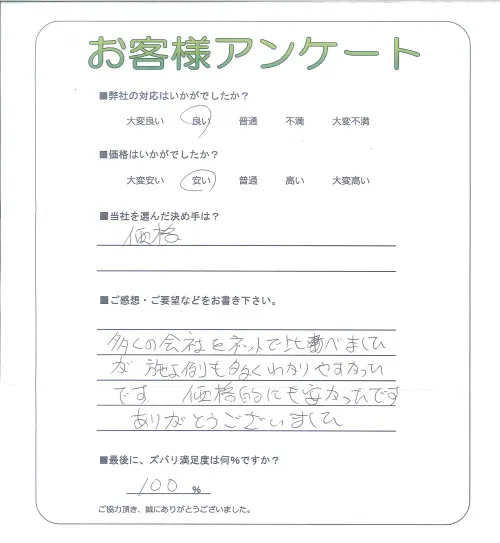 お客様アンケート
■弊社の対応はいかがでしたか？
大変良い 良い 普通 不満 大変不満
■価格はいかがでしたか？
大変安い 安い 普通 高い 大変高い
■当社を選んだ決め手は？
価格
■ご感想・ご要望などをお書き下さい。
多くの会社をネットで比べました
が 施工例も多くわかりやすかった
です 価格的にも安かったです
ありがとうございました
■最後に、ズバリ満足度は何％ですか？
100 %
ご協力頂き、誠にありがとうございました。